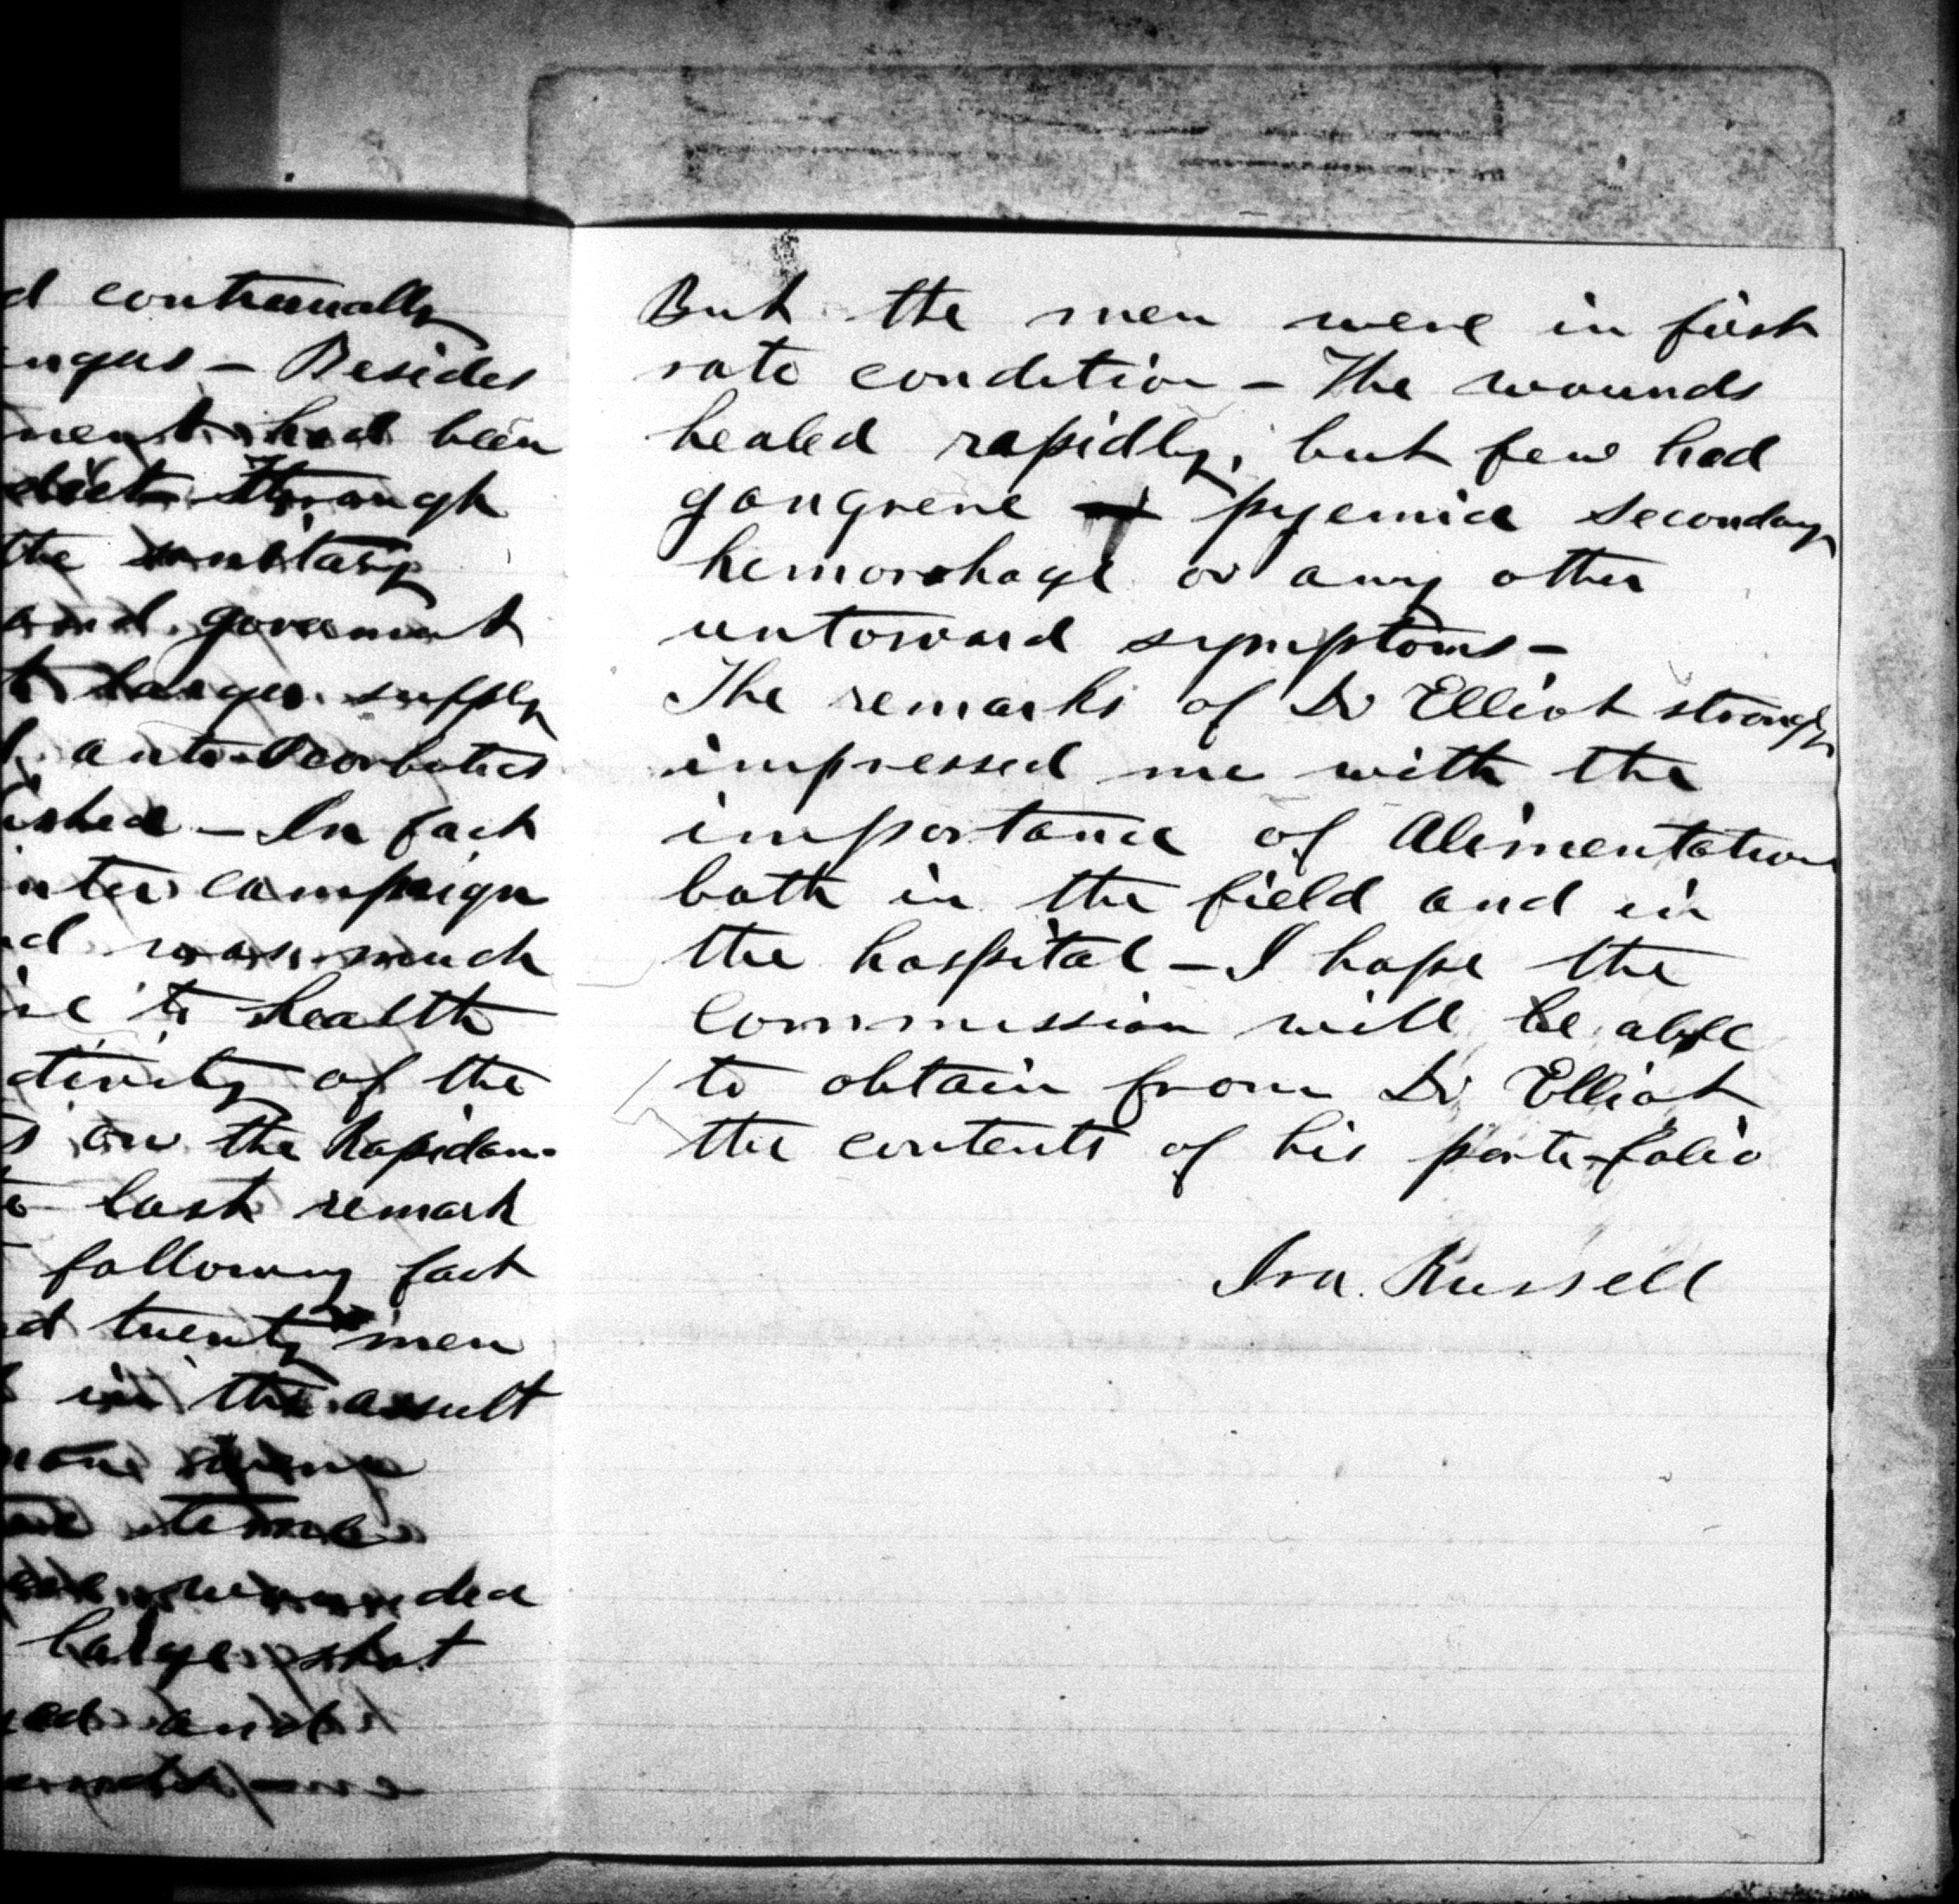 d continually
ngus - Besides
ment had been
diet through
the sanitary
and government
larger supply
anti-Scorbutics
ished - In fact
nter campaign
d was much
ive to health
ctivity of the
s on the Rapidan-
last remark
following fact
d twenty men
in the assult
some
time
wounded
large shot
ed and
But the men were in first
rate condition - The wounds
healed rapidly, but few had
gangrene pyemia secondary
hemorrhage or any other
untoward symptoms -
The remarks of Dr Elliot strongly
impressed me with the
importance of Alimentation
both in the field and in
the hospital - I hope the
Commission will be able
to obtain from Dr Elliot
the contents of his porte-folio
Ira. Russell